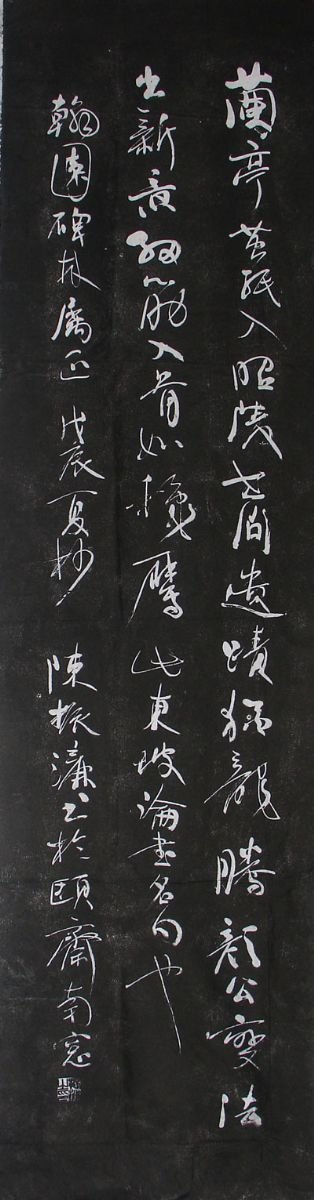 蘭亭茧紙入昭陵世間遺蹟猶龍騰顏公變法
出新意細筋入骨如秋鷹此東坡論書名句也
翰園碑林屬正戊辰夏杪陳振濂書於頤齋南窓